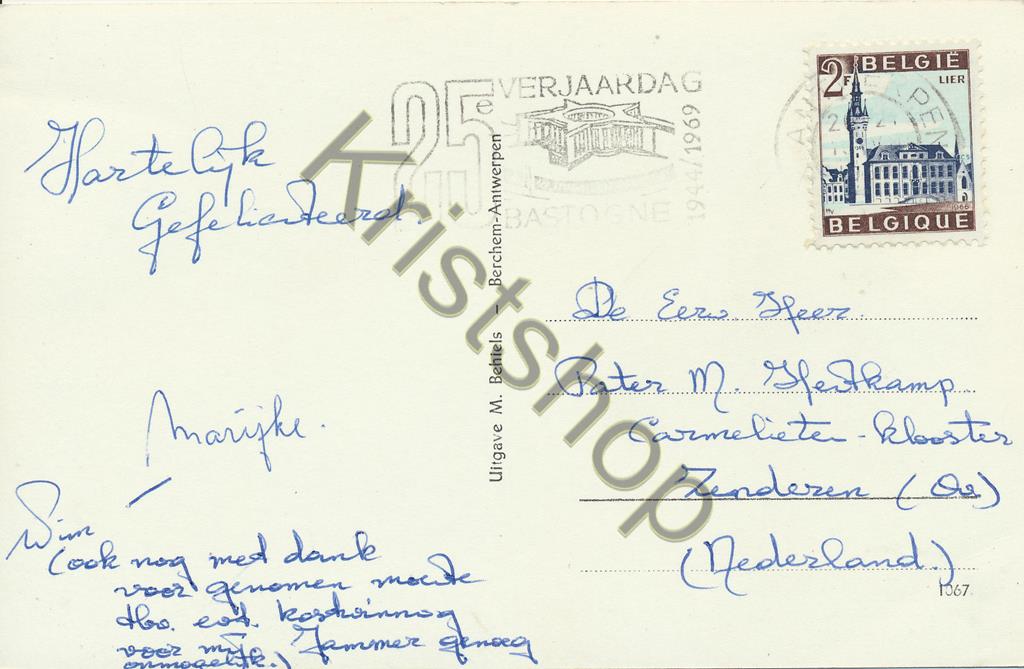 25e VERJAARDAG
BASTOGNE
1944/1969
2F BELGIË
LIER
1966
BELGIQUE
Hartelijk
Gefeliciteerd.
Marijke.
Wim
(ook nog met dank
voor genomen moeite
Hbo. evt. kostwinning
voor mij. Jammer genoeg
onmogelijk.)
Uitgave M. Behiels – Berchem-Antwerpen
De Eerw. Heer.
Pater M. Hertkamp
Carmelieten-klooster
Zenderen (Ov.)
(Nederland.)
1067
Kristshop